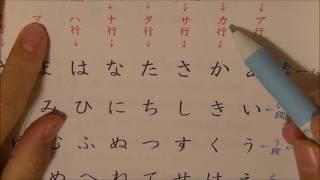 ア行 カ行 サ行 タ行 ナ行 ハ行 マ
↓ ↓ ↓ ↓ ↓ ↓
あ か さ た な は ま
い き し ち に ひ み
う く す つ ぬ ふ む
え け せ て ね へ め